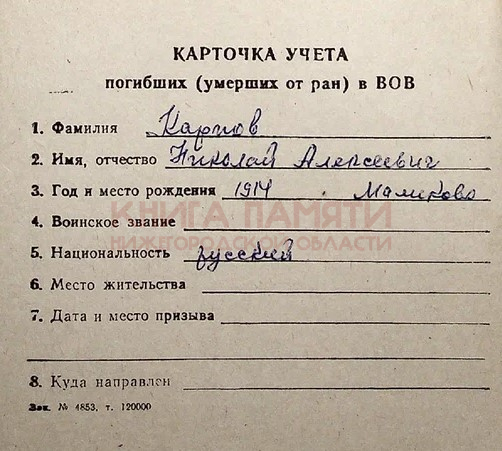 КАРТОЧКА УЧЕТА
погибших (умерших от ран) в ВОВ
1. Фамилия Карпов
2. Имя, отчество Николай Алексеевич
3. Год и место рождения 1914 Маликово
КНИГА ПАМЯТИ
4. Воинское звание
НИЖЕГОРОДСКОЙ ОБЛАСТИ
5. Национальность русский
6. Место жительства
7. Дата и место призыва
8. Куда направлен
Зак. № 4853, т. 120000